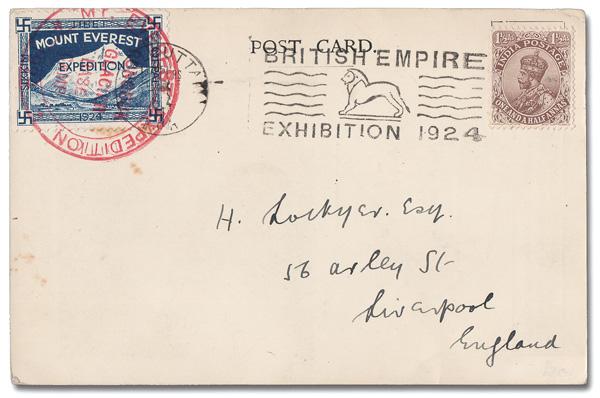 POST CARD.
MOUNT EVEREST
EXPEDITION
1924
BRITISH EMPIRE
EXHIBITION 1924
INDIA POSTAGE
ONE AND A HALF ANNAS
H. Lockyer. Esq.
56 Arley St
Liverpool
England